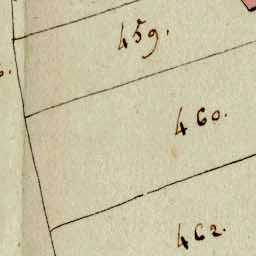 459.
460.
462.